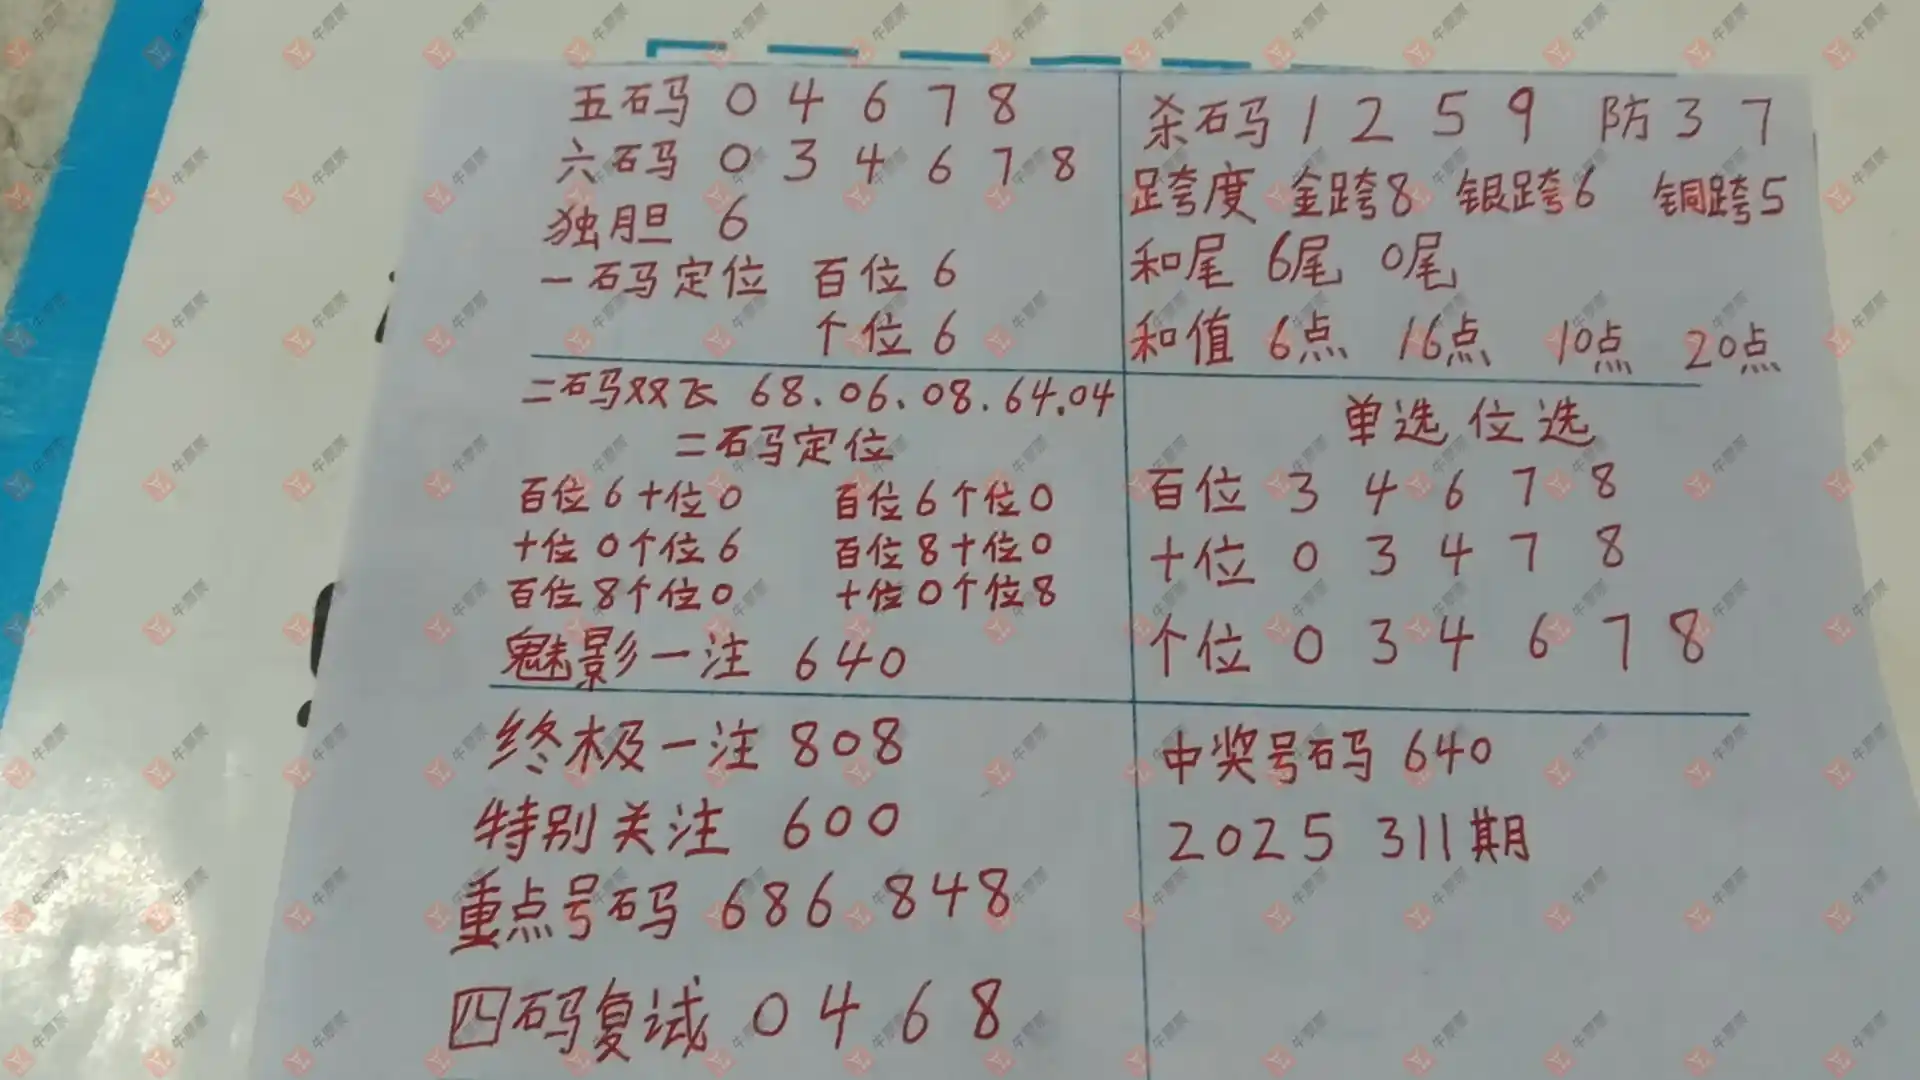 五码 0 4 6 7 8
六码 0 3 4 6 7 8
独胆 6
一码定位 百位 6
个位 6
杀码 1 2 5 9 防 3 7
跨度 金跨8 银跨6 铜跨5
和尾 6尾 0尾
和值 6点 16点 10点 20点
二码双飞 68.06.08.64.04
二码定位
百位6十位0 百位6个位0
十位0个位6 百位8十位0
百位8个位0 十位0个位8
魅影一注 640
单选位选
百位 3 4 6 7 8
十位 0 3 4 7 8
个位 0 3 4 6 7 8
终极一注 808
特别关注 600
重点号码 686 848
四码复试 0 4 6 8
中奖号码 640
2025 311期